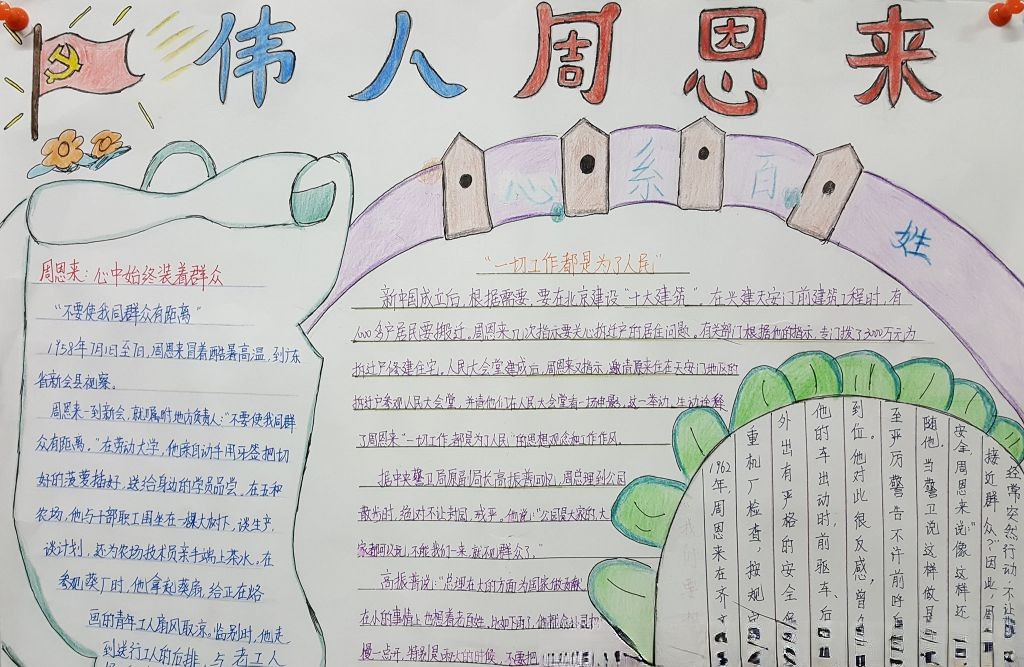 伟人周恩来
心系百姓
周恩来：心中始终装着群众
“不要使我同群众有距离”
1958年7月1日至7日，周恩来冒着酷暑高温，到广东
省新会县视察。
周恩来一到新会，就嘱咐地方负责人：“不要使我同群
众有距离。”在劳动大学，他亲自动手用牙签把切
好的菠萝插好，送给身边的学员品尝。在五和
农场，他与干部职工围坐在一棵大树下，谈生产，
谈计划，还为农场技术员亲手端上茶水。在
参观葵厂时，他拿起葵扇，给正在烙
画的青年工人扇风取凉。临别时，他走
到送行工人的后排，与老工人
“一切工作都是为了人民”
新中国成立后，根据需要，要在北京建设“十大建筑”。在兴建天安门前建筑工程时，有
600多户居民要搬迁。周恩来几次指示要关心拆迁户的居住问题。有关部门根据他的指示，专门拨了3000万元为
拆迁户修建住宅。人民大会堂建成后，周恩来又指示，邀请原来住在天安门地区的
拆迁户参观人民大会堂，并请他们在人民大会堂看一场电影。这一举动，生动诠释
了周恩来“一切工作都是为了人民”的思想观念和工作作风。
据中央警卫局原副局长高振普回忆，周总理到公园
散步时，绝对不让封园，戒严。他说：“公园是大家的，大
家都可以玩，不能我们一来，就不见群众了。”
高振普说：“总理在大的方面为国家做贡献，
在小的事情上也想着老百姓，比如下雨了，他都
慢一点开，特别是雨大的时候，不要把
1962年，周恩来在齐
重机厂检查，按规定
外出有严格的安全
他的车出动时，前驱车、后
到位。他对此很反感，曾
至严厉警告不许前呼
随他。当警卫说这样做是
安全，周恩来说：“像这样还
接近群众？”因此，周
经常突然行动，不让